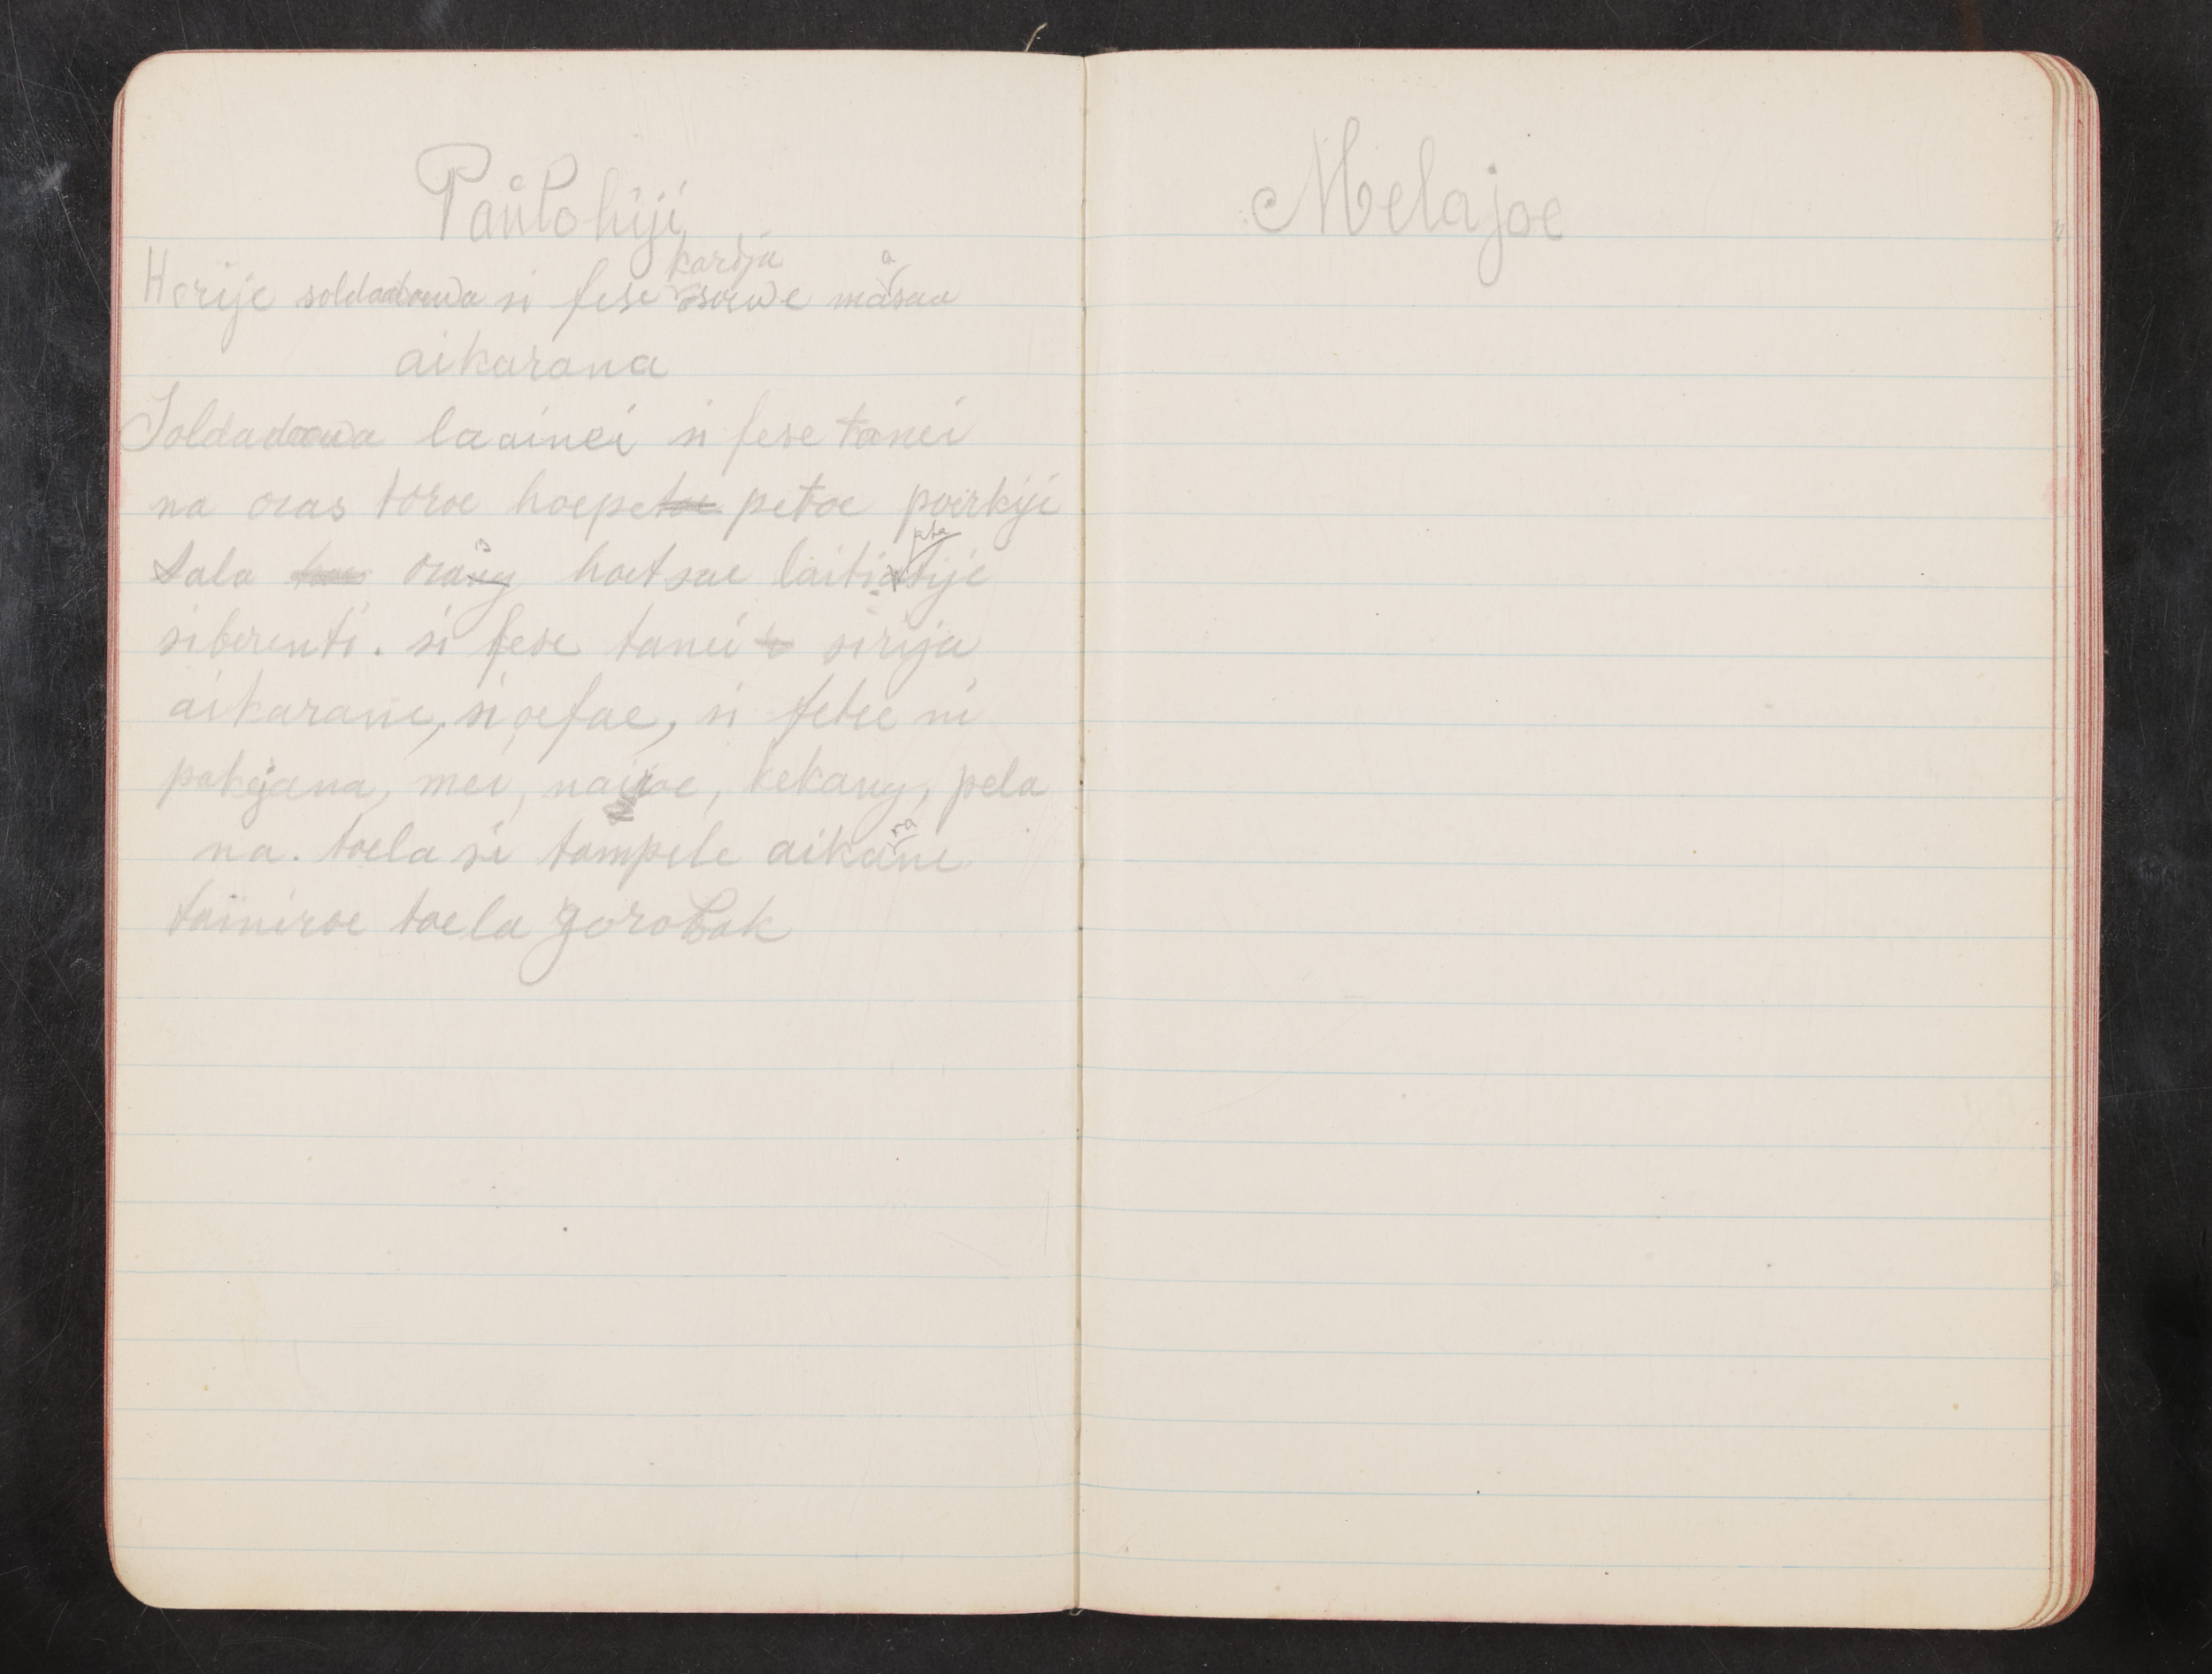 Paulohiji
kardja
Horije soldadoewa si fese osowe masaa
a
aikarana
Soldadoewa laainei si fese tanei
na oras toroe hoepetoe petoe poirkiji
sala orang hoetsae laitiatije
siberenti. si fese tanei sirija
aikarane, si oefae, si fetee ni
pakejana, mei, nairoe, kekang, pela
na. toela si tampele aikane
ra
tainiroe toela gorobak
Melajoe